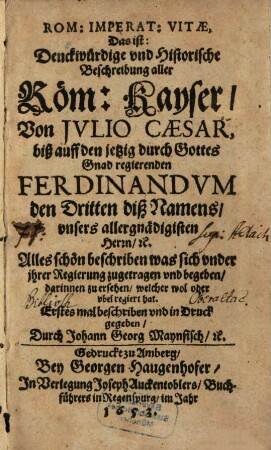 ROM: IMPERAT: VITÆ,
Das ist:
Denckwürdige vnd Historische
Beschreibung aller
Röm: Kayser/
Von JVLIO CÆSAR,
biß auff den jetzig durch Gottes
Gnad regierenden
FERDINANDVM
den Dritten diß Namens/
vnsers allergnädigisten
Herrn/ ꝛc.
Alles schön beschriben was sich vnder
jhrer Regierung zugetragen vnd begeben/
darinnen zu ersehen/ welcher wol oder
vbel regiert hat.
Erstes mal beschriben vnd in Druck
gegeben/
Durch Johann Georg Maynfisch/ ꝛc.
Gedruckt zu Amberg/
Bey Georgen Haugenhofer/
In Verlegung Joseph Auckentoblers/ Buch-
führers in Regenspurg/ im Jahr
1653.